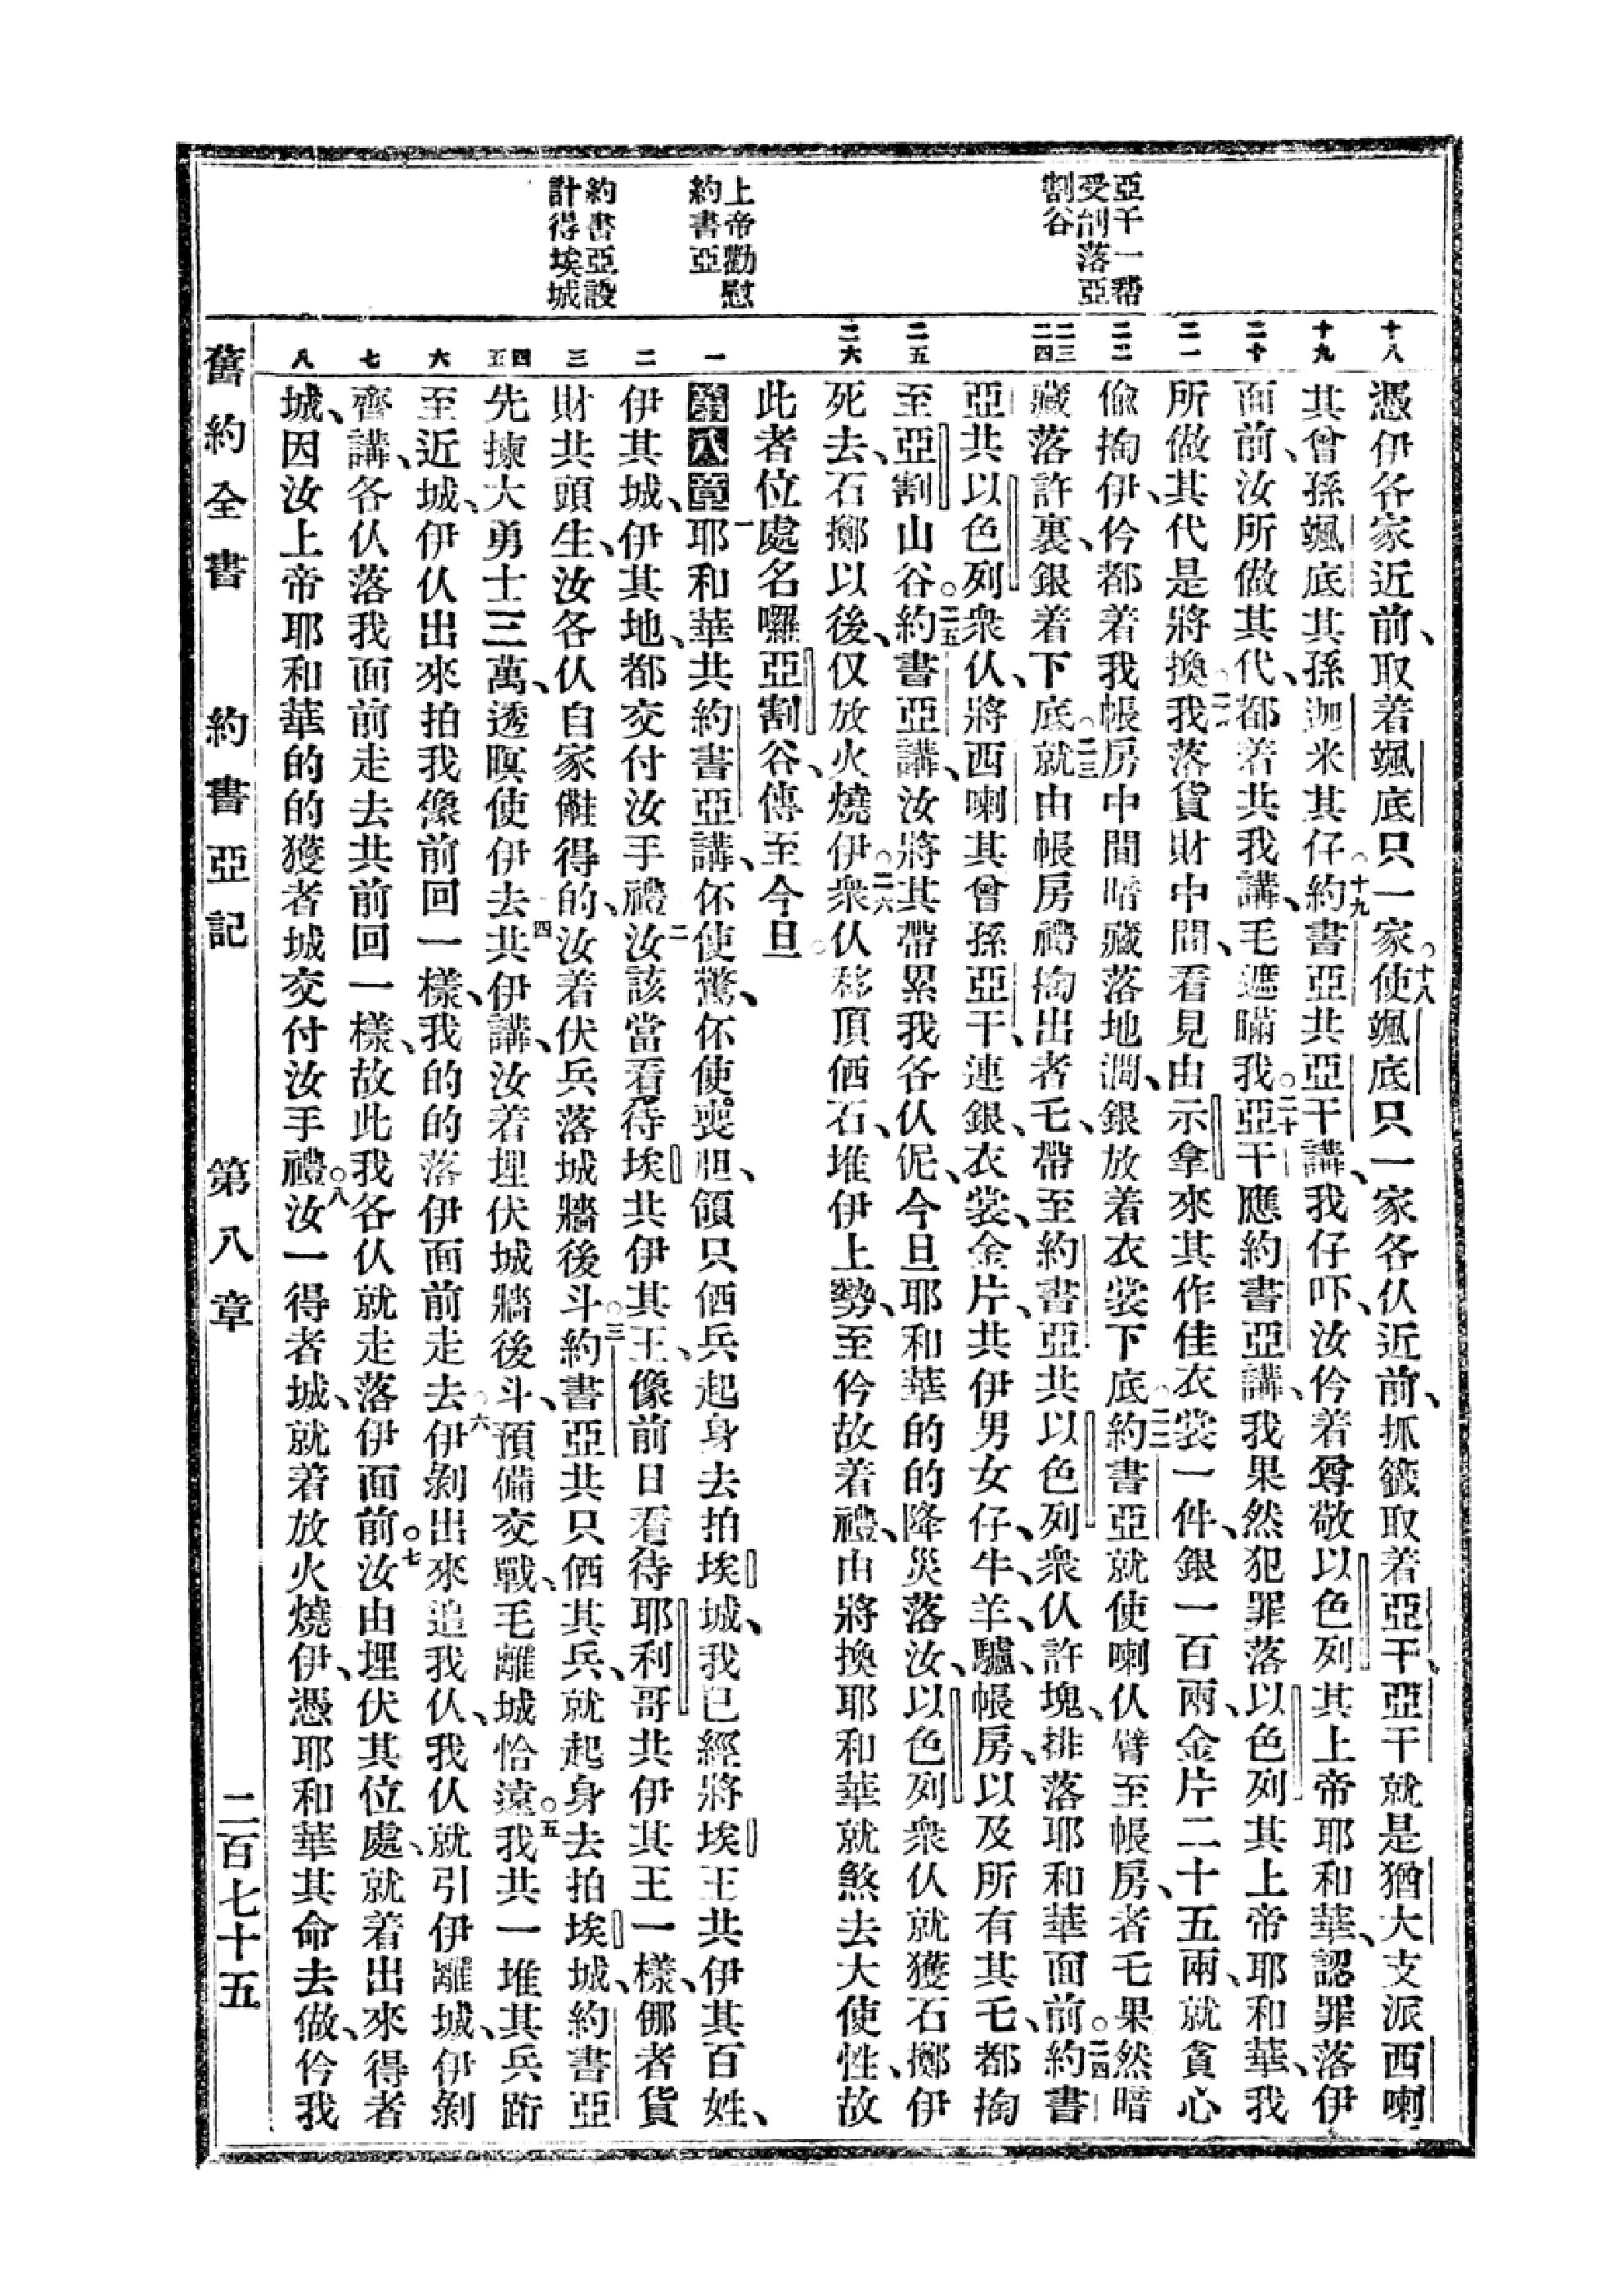 亞干一帮
受刣落亞
割谷
上帝勸慰
約書亞
約書亞設
計得埃城
十八
十九
二十
二一
二二
二三
二四
二五
二六
一
二
三
四
五
六
七
八
憑伊各家近前、取着颯底只一家。十八使颯底只一家各仈近前、抓籤取着亞干、亞干就是猶大支派西喇
其曾孫颯底其孫迦米其仔。十九約書亞共亞干講、我仔吓、汝仱着尊敬以色列其上帝耶和華、認罪落伊
面前、汝所做其代、都着共我講、毛遮瞞我。二十亞干應約書亞講、我果然犯罪落以色列其上帝耶和華、我
所做其代是將換。二一我落貨財中間、看見由示拿來其作佳衣裳一件、銀一百兩、金片二十五兩、就貪心
偷掏伊、仱都着我帳房中間暗藏落地濶、銀放着衣裳下底。二二約書亞就使喇仈臂至帳房、者乇果然暗
藏落許裏、銀着下底。二三就由帳房禮掏出者乇、帶至約書亞共以色列衆仈許塊、排落耶和華面前。二四約書
亞共以色列衆仈、將西喇其曾孫亞干、連銀、衣裳、金片、共伊男女仔、牛、羊、驢、帳房、以及所有其乇、都掏
至亞割山谷。二五約書亞講、汝將其帶累我各仈伲、今旦耶和華的的降災落汝、以色列衆仈就獲石擲伊
死去、石擲以後、仅放火燒伊。二六衆仈移頂俖石、堆伊上勢、至仱故着禮、由將換耶和華就煞去大使性、故
此者位處名囉亞割谷、傳至今旦。
第八章一耶和華共約書亞講、伓使驚、伓使喪胆、領只俖兵起身去拍埃城、我已經將埃王共伊其百姓、
伊其城、伊其地、都交付汝手禮、二汝該當看待埃共伊其王、像前日看待耶利哥共伊其王一樣、㑚者貨
財共頭生、汝各仈自家儺得的、汝着伏兵落城牆後斗。三約書亞共只俖其兵、就起身去拍埃城、約書亞
先揀大勇士三萬、透暝使伊去、四共伊講、汝着埋伏城牆後斗、預備交戰、毛離城恰遠。五我共一堆其兵跻
至近城、伊仈出來拍我像前回一樣、我的的落伊面前走去。六伊剝出來追我仈、我仈就引伊離城、伊剝
齊講、各仈落我面前走去共前回一樣、故此我各仈就走落伊面前。七汝由埋伏其位處、就着出來得者
城、因汝上帝耶和華的的獲者城交付汝手禮。八汝一得者城、就着放火燒伊、憑耶和華其命去做、仱我
舊約全書 約書亞記 第八章 二百七十五